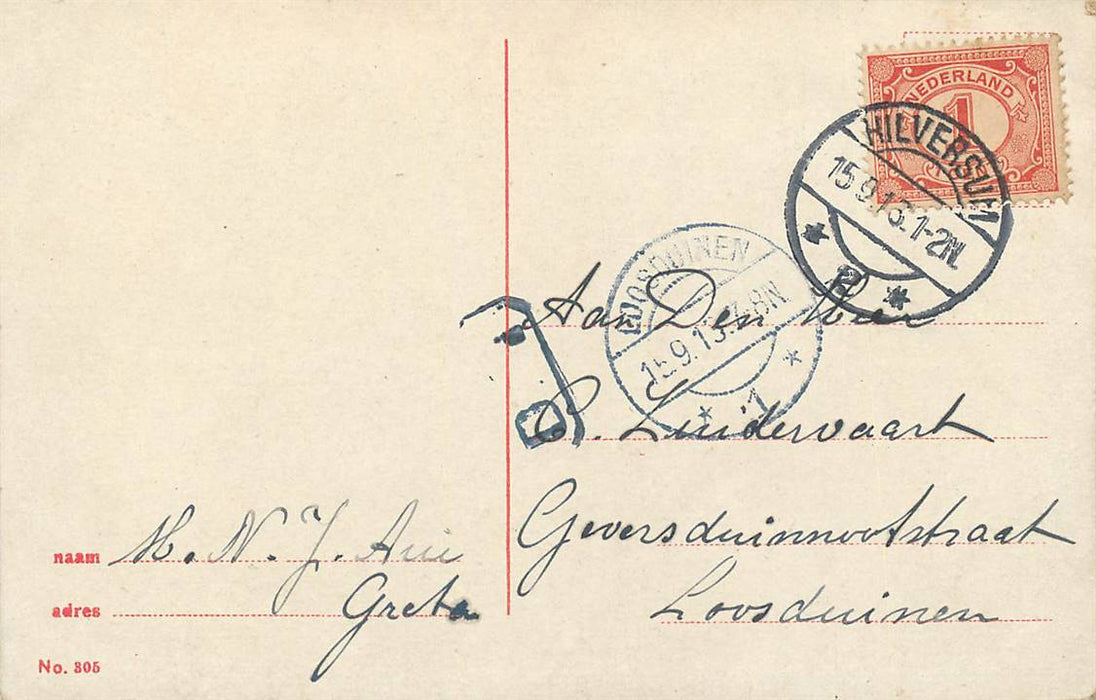 NEDERLAND
1
HILVERSUM
15.9.13.1-2N.
2
LOOSDUINEN
15.9.13.7-8N
1
Aan Den Heer
C. Zuidervaart
Geversduinnootstraat
Loosduinen
naam H. N. J.
Greta
adres
No. 305